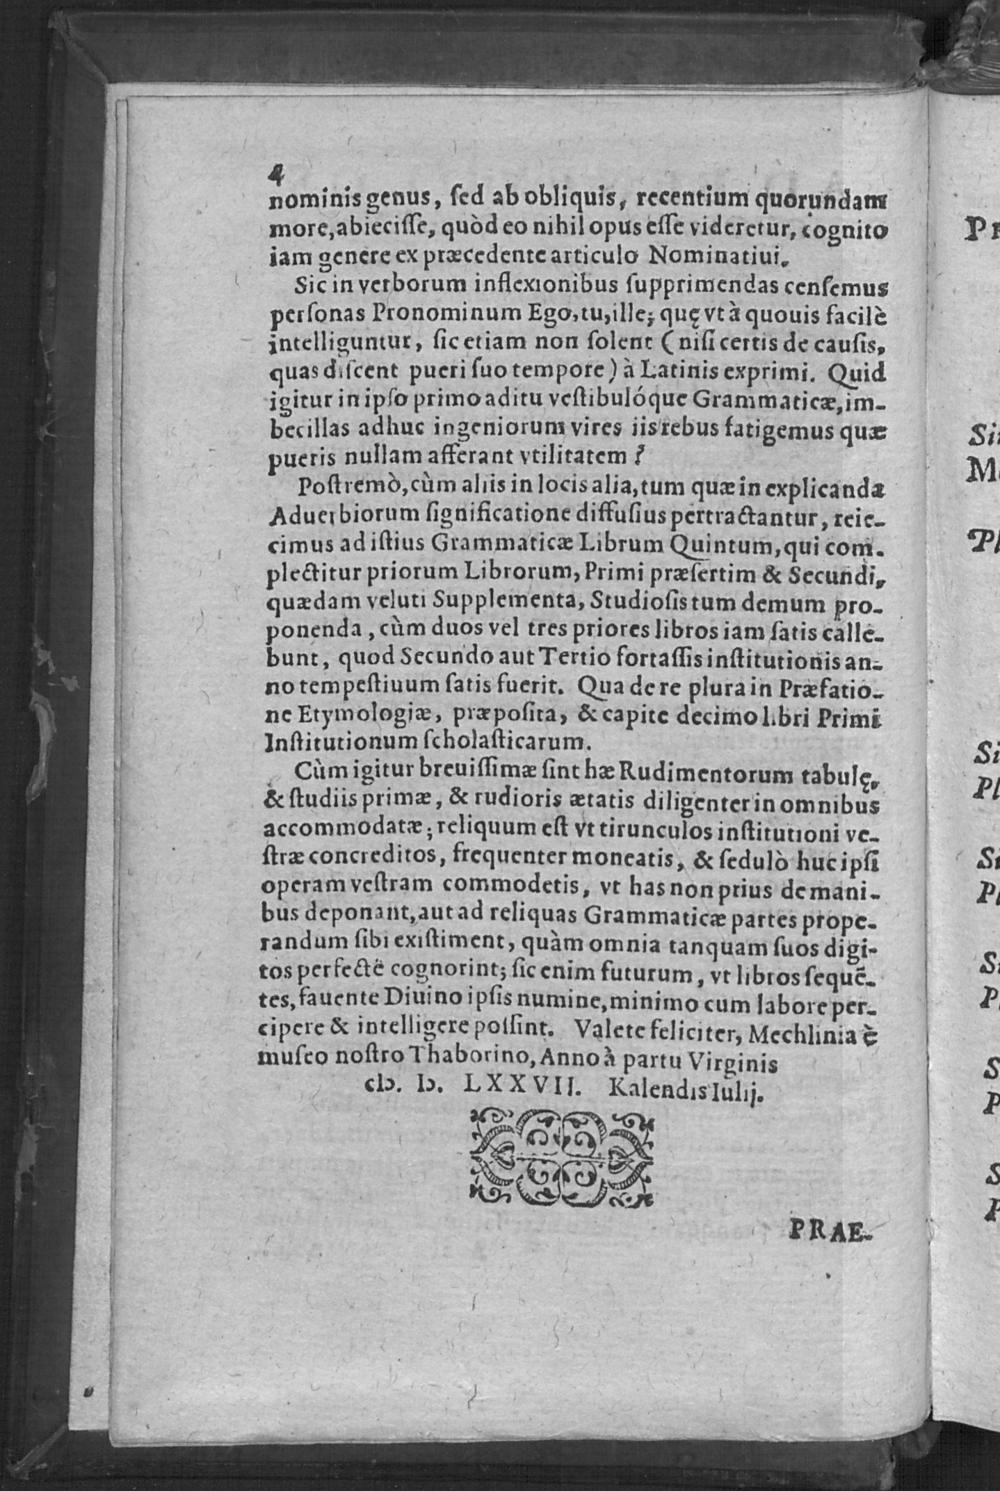 4
nominis genus, ſed ab obliquis, recentium quorundam
more, abieciſſe, quòd eo nihil opus eſſe videretur, cognito
iam genere ex præcedente articulo Nominatiui.
Sic in verborum inflexionibus ſupprimendas cenſemus
perſonas Pronominum Ego, tu, ille; quę vt à quouis facilè
intelliguntur, ſic etiam non ſolent (niſi certis de cauſis,
quas diſcent pueri ſuo tempore) à Latinis exprimi. Quid
igitur in ipſo primo aditu veſtibulóque Grammaticæ, im-
becillas adhuc ingeniorum vires iis rebus fatigemus quæ
pueris nullam afferant vtilitatem?
Poſtremò, cùm aliis in locis alia, tum quæ in explicanda
Aduerbiorum ſignificatione diffuſius pertractantur, reie-
cimus ad iſtius Grammaticæ Librum Quintum, qui com-
plectitur priorum Librorum, Primi præſertim & Secundi,
quædam veluti Supplementa, Studioſis tum demum pro-
ponenda, cùm duos vel tres priores libros iam ſatis calle-
bunt, quod Secundo aut Tertio fortaſſis inſtitutionis an-
no tempeſtiuum ſatis fuerit. Qua de re plura in Præfatio-
ne Etymologiæ, præpoſita, & capite decimo libri Primi
Inſtitutionum ſcholaſticarum.
Cùm igitur breuiſſimæ ſint hæ Rudimentorum tabulę,
& ſtudiis primæ, & rudioris ætatis diligenter in omnibus
accommodatæ; reliquum eſt vt tirunculos inſtitutioni ve-
ſtræ concreditos, frequenter moneatis, & ſedulò huc ipſi
operam veſtram commodetis, vt has non prius de mani-
bus deponant, aut ad reliquas Grammaticæ partes prope-
randum ſibi exiſtiment, quàm omnia tanquam ſuos digi-
tos perfectè cognorint; ſic enim futurum, vt libros ſequẽ-
tes, fauente Diuino ipſis numine, minimo cum labore per-
cipere & intelligere poſſint. Valete feliciter, Mechlinia è
muſeo noſtro Thaborino, Anno à partu Virginis
cIↃ. IↃ. LXXVII. Kalendis Iulij.
PRAE-
Pl
Pl
Pl